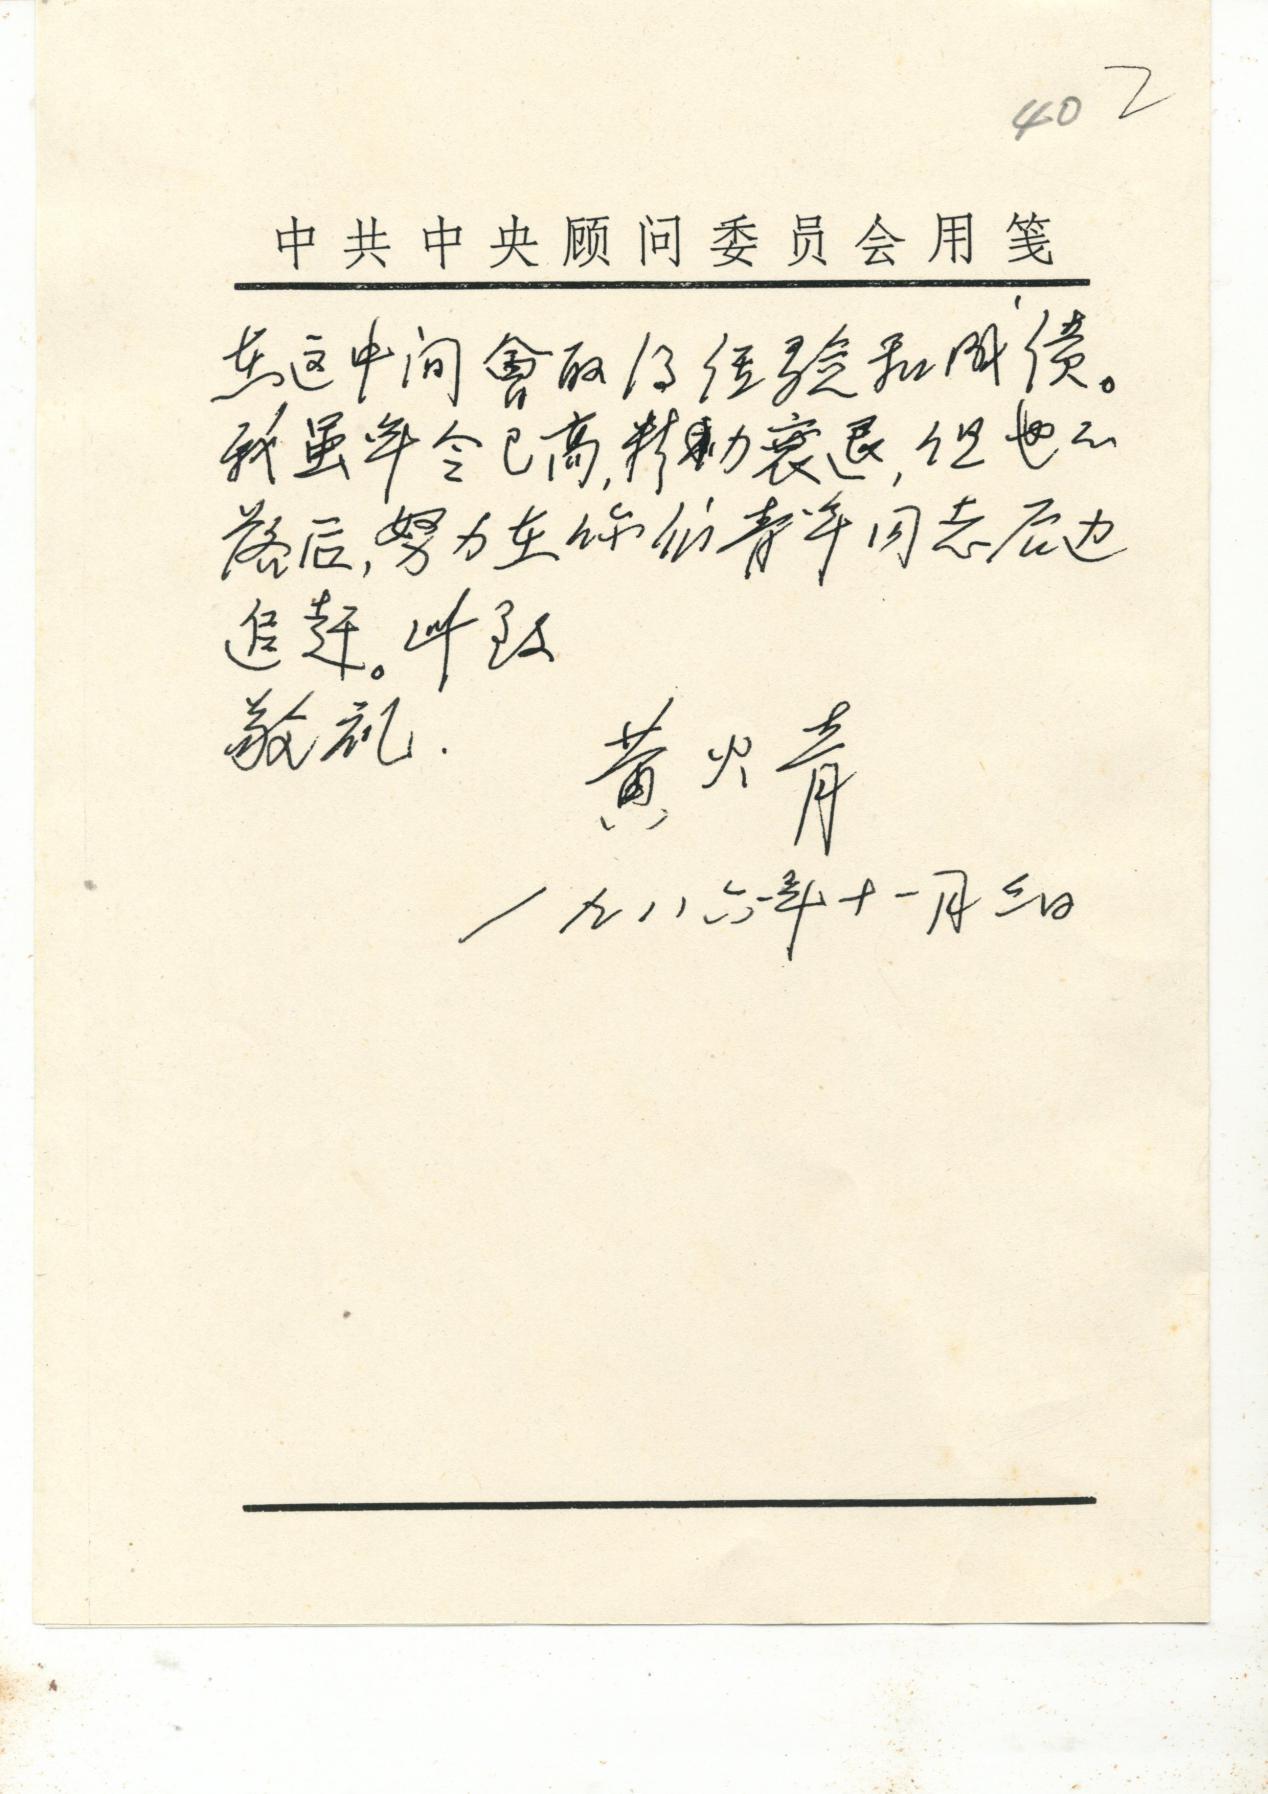 40 2
中共中央顾问委员会用笺
在这中间會取得经验和成绩。
我虽年令已高,精力衰退,但也不
落后,努力在你们青年同志后边
追赶。此致
敬礼.
黄火青
一九八六年十一月三日